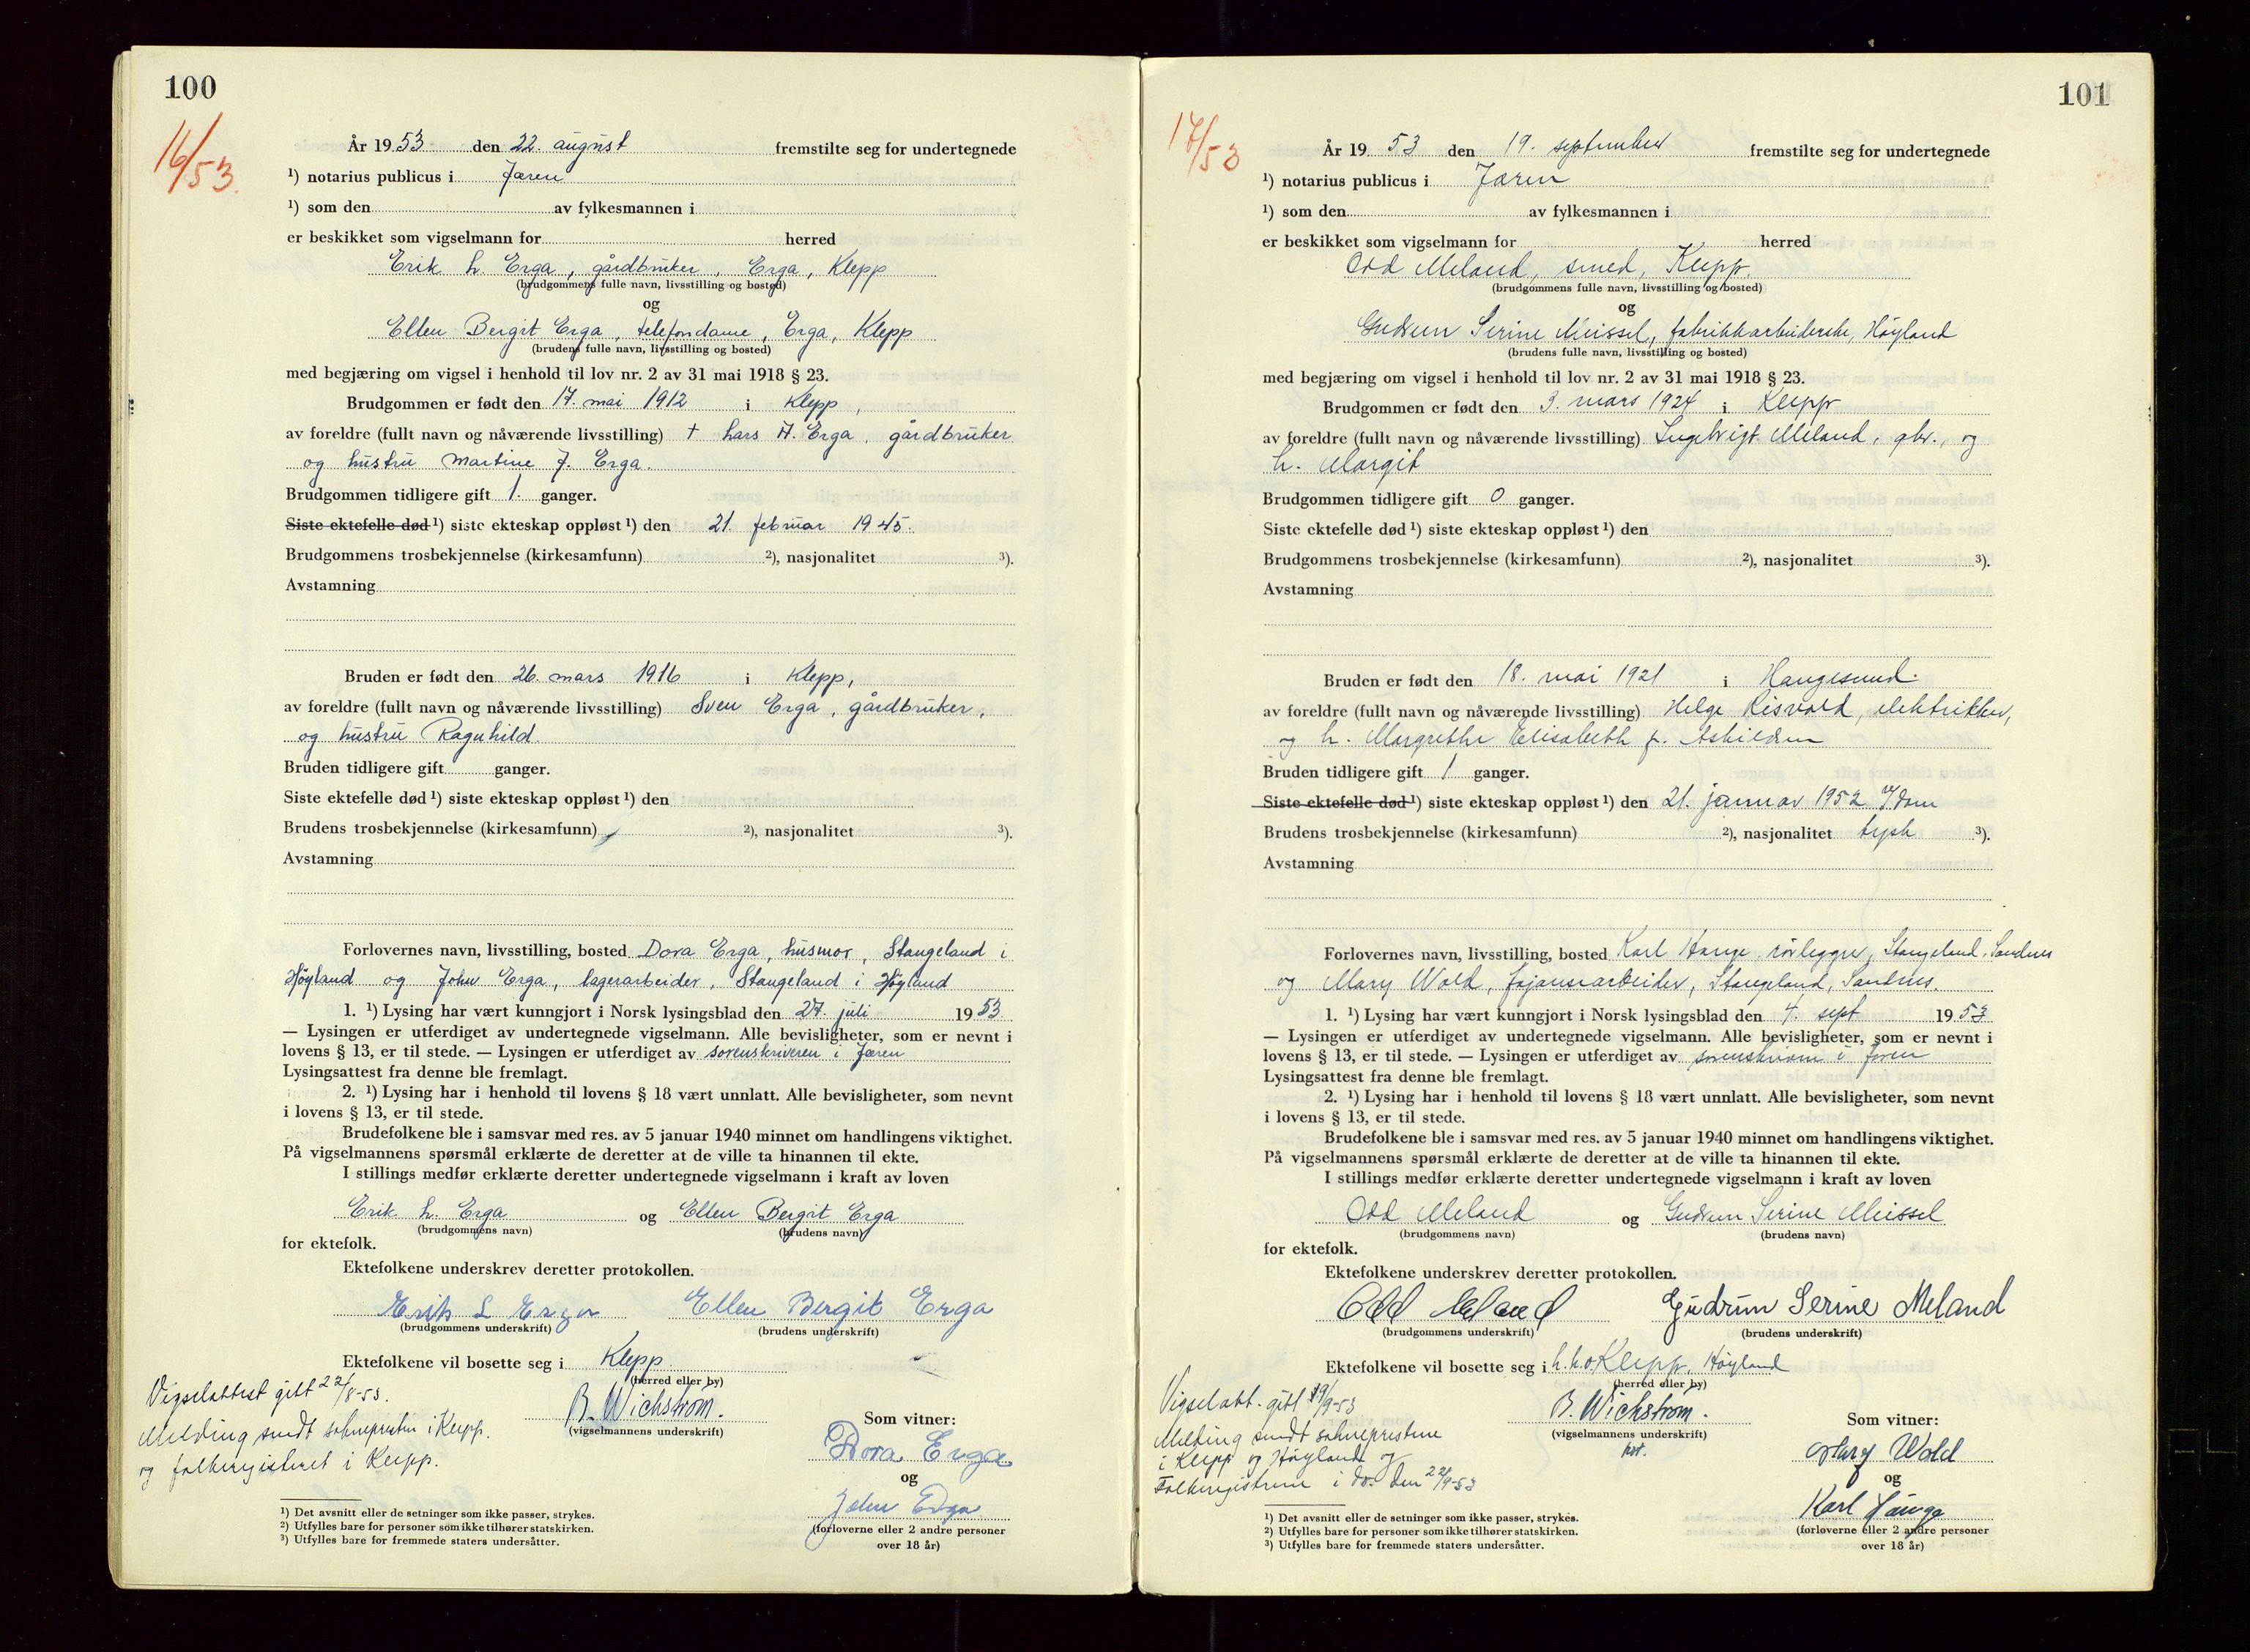 100
16/53.
År 1953 den 22. august fremstilte seg for undertegnede
¹) notarius publicus i Jæren
¹) som den av fylkesmannen i
er beskikket som vigselmann for herred
Erik L. Erga, gårdbruker, Erga, Klepp
(brudgommens fulle navn, livsstilling og bosted)
og
Ellen Bergit Erga, telefondame, Erga, Klepp
(brudens fulle navn, livsstilling og bosted)
med begjæring om vigsel i henhold til lov nr. 2 av 31 mai 1918 § 23.
Brudgommen er født den 17. mai 1912 i Klepp,
av foreldre (fullt navn og nåværende livsstilling) † Lars A. Erga, gårdbruker
og hustru Martine J. Erga.
Brudgommen tidligere gift 1. ganger.
Siste ektefelle død ¹) siste ekteskap oppløst ¹) den 21. februar 1945.
Brudgommens trosbekjennelse (kirkesamfunn) ²), nasjonalitet ³).
Avstamning
Bruden er født den 26. mars 1916 i Klepp,
av foreldre (fullt navn og nåværende livsstilling) Sven Erga, gårdbruker,
og hustru Ragnhild.
Bruden tidligere gift ganger.
Siste ektefelle død ¹) siste ekteskap oppløst ¹) den
Brudens trosbekjennelse (kirkesamfunn) ²), nasjonalitet ³).
Avstamning
Forlovernes navn, livsstilling, bosted Dora Erga, husmor, Stangeland i
Høyland og John Erga, lagerarbeider, Stangeland i Høyland
1. ¹) Lysing har vært kunngjort i Norsk lysingsblad den 27. juli 1953
— Lysingen er utferdiget av undertegnede vigselmann. Alle bevisligheter, som er nevnt i
lovens § 13, er til stede. — Lysingen er utferdiget av sorenskriveren i Jæren
Lysingsattest fra denne ble fremlagt.
2. ¹) Lysing har i henhold til lovens § 18 vært unnlatt. Alle bevisligheter, som nevnt
i lovens § 13, er til stede.
Brudefolkene ble i samsvar med res. av 5 januar 1940 minnet om handlingens viktighet.
På vigselmannens spørsmål erklærte de deretter at de ville ta hinannen til ekte.
I stillings medfør erklærte deretter undertegnede vigselmann i kraft av loven
Erik L. Erga og Ellen Bergit Erga
(brudgommens navn) (brudens navn)
for ektefolk.
Ektefolkene underskrev deretter protokollen.
Erik L Erga Ellen Bergit Erga
(brudgommens underskrift) (brudens underskrift)
Ektefolkene vil bosette seg i Klepp
(herred eller by)
Vigselattest gitt 22/8-53.
Melding sendt soknepresten i Klepp.
og folkeregisteret i Klepp.
B. Wichstrøm.
(vigselmannens underskrift)
Som vitner:
Dora Erga
og
John Erga
(forloverne eller 2 andre personer
over 18 år)
¹) Det avsnitt eller de setninger som ikke passer, strykes.
²) Utfylles bare for personer som ikke tilhører statskirken.
³) Utfylles bare for fremmede staters undersåtter.
101
17/53
År 1953 den 19. september fremstilte seg for undertegnede
¹) notarius publicus i Jæren
¹) som den av fylkesmannen i
er beskikket som vigselmann for herred
Odd Meland, smed, Klepp.
(brudgommens fulle navn, livsstilling og bosted)
og
Gudrun Serine Meissel, fabrikkarbeiderske, Høyland
(brudens fulle navn, livsstilling og bosted)
med begjæring om vigsel i henhold til lov nr. 2 av 31 mai 1918 § 23.
Brudgommen er født den 3. mars 1924 i Klepp
av foreldre (fullt navn og nåværende livsstilling) Ingebrigt Meland, gbr., og
h. Margit
Brudgommen tidligere gift 0 ganger.
Siste ektefelle død ¹) siste ekteskap oppløst ¹) den
Brudgommens trosbekjennelse (kirkesamfunn) ²), nasjonalitet ³).
Avstamning
Bruden er født den 18. mai 1921 i Haugesund.
av foreldre (fullt navn og nåværende livsstilling) Helge Risvold, elektriker,
og h. Margrethe Elisabeth f. Askildsen
Bruden tidligere gift 1 ganger.
Siste ektefelle død ¹) siste ekteskap oppløst ¹) den 21. januar 1952 v/dom
Brudens trosbekjennelse (kirkesamfunn) ²), nasjonalitet tysk ³).
Avstamning
Forlovernes navn, livsstilling, bosted Karl Hauge, rørlegger, Stangeland, Sandnes
og Mary Wold, fajansearbeider, Stangeland, Sandnes.
1. ¹) Lysing har vært kunngjort i Norsk lysingsblad den 4. sept 1953
— Lysingen er utferdiget av undertegnede vigselmann. Alle bevisligheter, som er nevnt i
lovens § 13, er til stede. — Lysingen er utferdiget av sorenskriveren i Jæren
Lysingsattest fra denne ble fremlagt.
2. ¹) Lysing har i henhold til lovens § 18 vært unnlatt. Alle bevisligheter, som nevnt
i lovens § 13, er til stede.
Brudefolkene ble i samsvar med res. av 5 januar 1940 minnet om handlingens viktighet.
På vigselmannens spørsmål erklærte de deretter at de ville ta hinannen til ekte.
I stillings medfør erklærte deretter undertegnede vigselmann i kraft av loven
Odd Meland og Gudrun Serine Meissel
(brudgommens navn) (brudens navn)
for ektefolk.
Ektefolkene underskrev deretter protokollen.
Odd Meland Gudrun Serine Meland
(brudgommens underskrift) (brudens underskrift)
Ektefolkene vil bosette seg i h.h.v. Klepp, Høyland
(herred eller by)
Vigselatt. gitt 19/9-53
Melding sendt sokneprestene
i Klepp og Høyland og
Folkeregistrene i do. den 22/9-53
B. Wichstrøm.
(vigselmannens underskrift)
Som vitner:
Mary Wold
og
Karl Hauge
(forloverne eller 2 andre personer
over 18 år)
¹) Det avsnitt eller de setninger som ikke passer, strykes.
²) Utfylles bare for personer som ikke tilhører statskirken.
³) Utfylles bare for fremmede staters undersåtter.